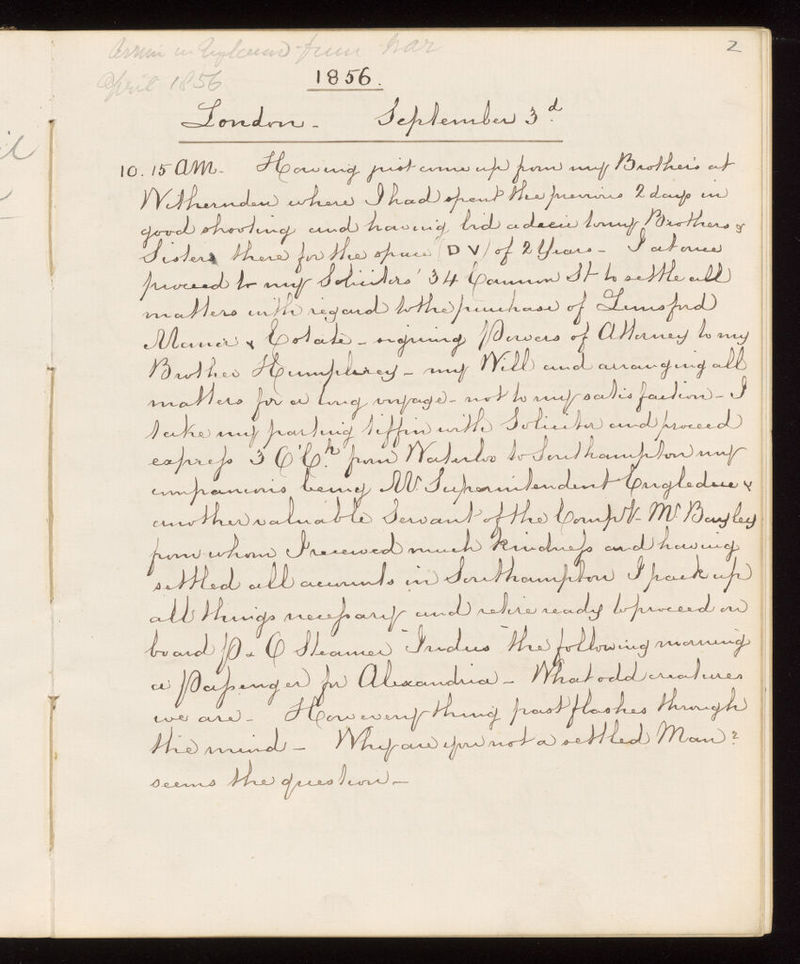 2
in England from War
April 1856
1856.
London - September 3d.
10.15 AM. Having just come up from my Brother's at
Withernden where I had spent the previous 2 days in
good shooting and having bid adieu to my Brothers &
Sisters there for the space (D V) of 2 Years - I at once
proceed to my Solicitors' 34 Cannon St to settle all
matters with regard to the purchase of Lunsford
Manor & Estate - signing Powers of Attorney to my
Brother Humphrey - my Will and arranging all
matters for a long voyage - not to my satisfaction - I
take my parting tiffin with Solicitor and proceed
express 3 O'Ch. from Waterloo to Southampton my
companions being Mr Superintendent Engledue &
another valuable Servant of the Compy - Mr Bayley
from whom I received much kindness and having
settled all accounts in Southampton I pack up
all things necessary and retire ready to proceed on
board P & O Steamer "Indus" the following morning
a Passenger for Alexandria - What odd creatures
we are - How everything past flashes through
the mind - Why are you not a settled Man?
seems the question -